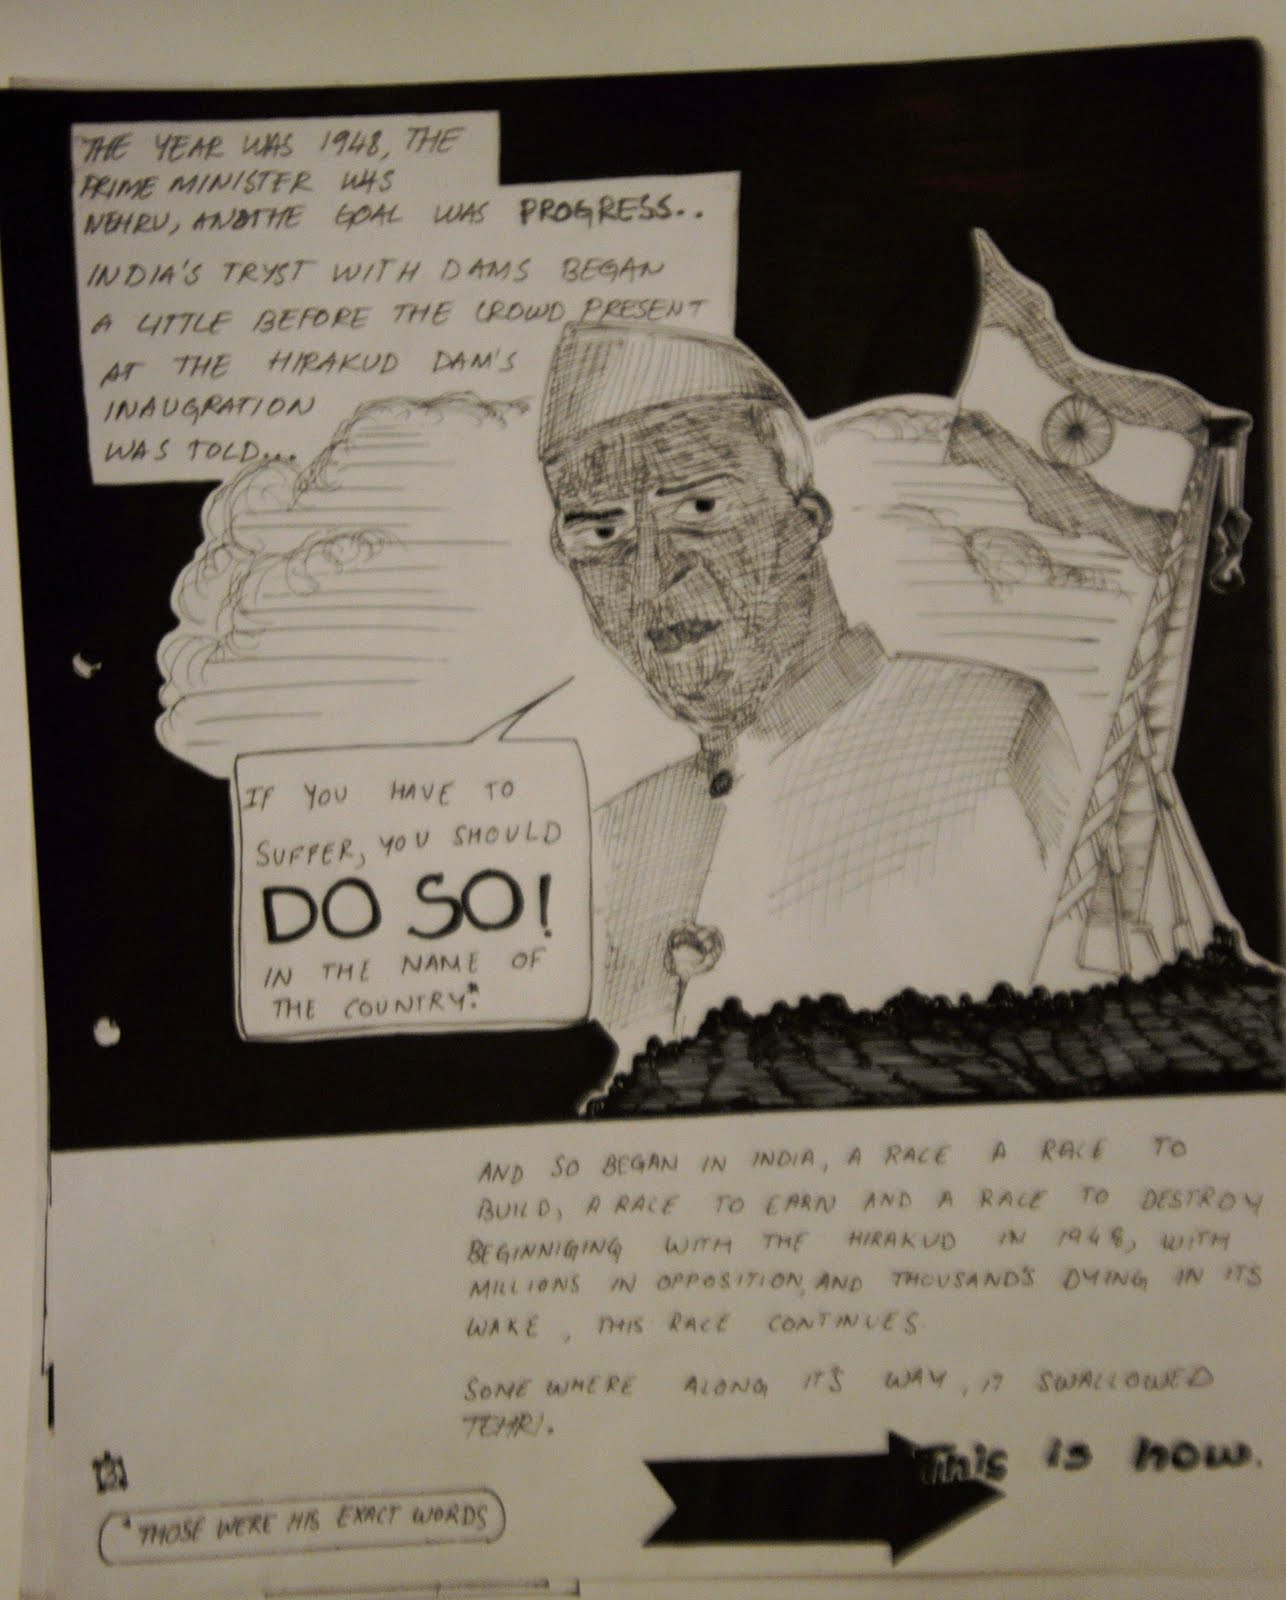 THE YEAR WAS 1948, THE
PRIME MINISTER WAS
NEHRU, AND THE GOAL WAS PROGRESS..
INDIA'S TRYST WITH DAMS BEGAN
A LITTLE BEFORE THE CROWD PRESENT
AT THE HIRAKUD DAM'S
INAUGRATION
WAS TOLD...
IF YOU HAVE TO
SUFFER, YOU SHOULD
DO SO!
IN THE NAME OF
THE COUNTRY.*
AND SO BEGAN IN INDIA, A RACE A RACE TO
BUILD, A RACE TO EARN AND A RACE TO DESTROY
BEGINNIGING WITH THE HIRAKUD IN 1948, WITH
MILLIONS IN OPPOSITION, AND THOUSAND'S DYING IN ITS
WAKE, THIS RACE CONTINUES
SOMEWHERE ALONG IT'S WAY, IT SWALLOWED
TEHRI.
This is how.
3
*THOSE WERE HIS EXACT WORDS